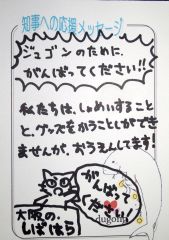 知事への応援メッセージ
ジュゴンのために、
がんばってください!!
私たちは、しょめいすること
と、グッズをかうことしかでき
ませんが、おうえんしてます!
がんばって
ください
dugong
大阪の、
しばはら